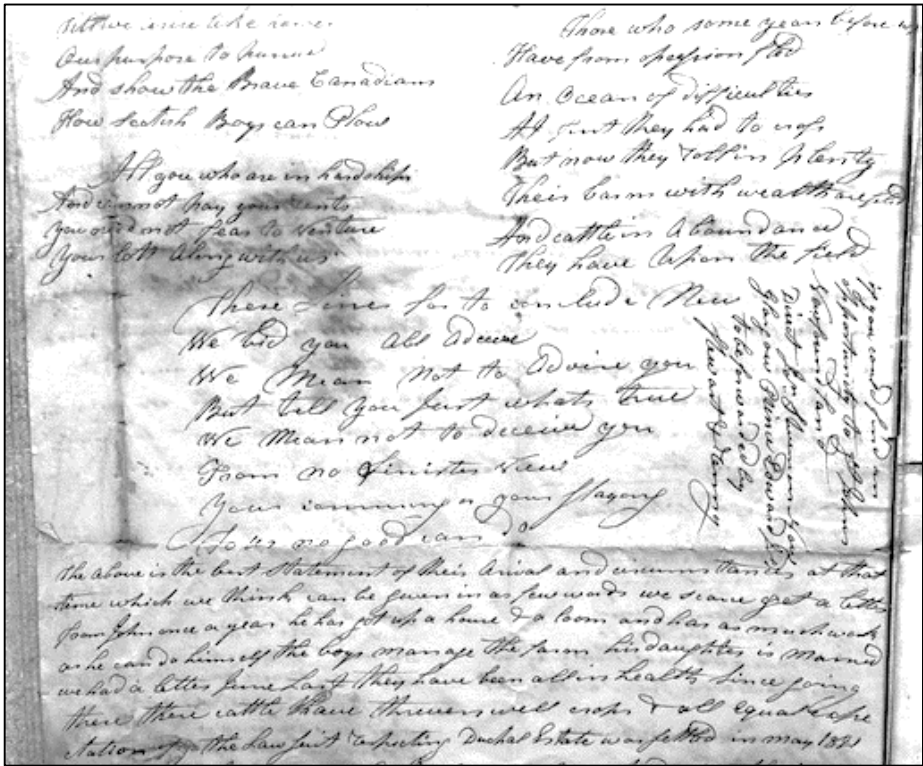 Our purpose to pursue
And show the Brave Canadians
How Scotish Boys can Plow
All you who are in hardships
And cannot pay your rents
you need not fear to Venture
Your lott Along with us
Those who some years before us
Have from opression fled
An Ocean of difficulties
At first they had to cross
But now they roll in plenty
Their barns with wealth are
And cattle in Aboundance
They have Upon the field
These Lines for to conclude Now
We bid you All Adieue
We Mean not to Advise you
But tell you Just whats true
We Mean not to deceive you
From no Sinister View
Your comming or your Staying
To us no good can do
if you could find an
opportunity to St Johns
Newfoundland
Direct
Prince Edward
to be forwarded by
Stewart &
The Above is the best Statement of their Arival and circumstances at that
time which we think can be given in as few words we scarce get a letter
from John once a year he has got up a house & a loom and has as much work
as he can do himself the boys manage the farm his daughter is married
we had a letter June Last they have been all in health Since going
there there cattle have thriven well crops & all equal expe
ctation the Law Suit respecting Duchal Estate was settled in may 1821